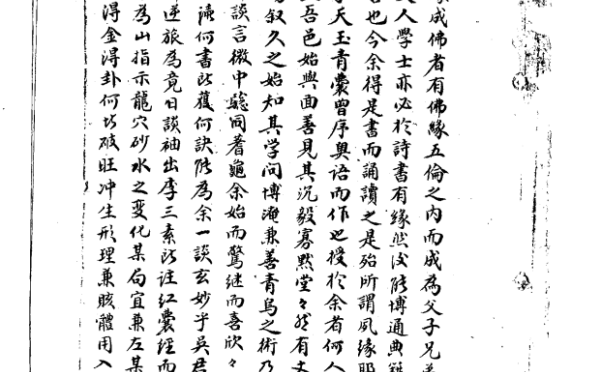 缘成佛者有佛缘五倫之内而成為父子兄弟
文人學士亦必於詩書有缘然後能博通典籍
者也今余得是書而誦讀之是殆所謂夙缘耶
天玉青囊曾序奥语而作也授於余者何人
吾邑始與面善見其沉毅寡默堂々然有丈
叙久之始知其学问博淹兼善青乌之術乃
談言微中驗同蓍龜余始而驚継而喜欣々
讀何書所獲何訣能為余一談玄妙乎吴君
逆旅為竟日談袖出李三素所注红囊經而
為山指示龍穴砂水之变化某局宜兼左某
得金得卦何以破旺冲生形理兼賅體用入